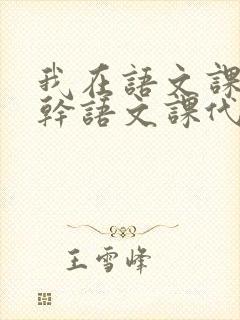 我在語文課
幹語文課代
王雪峰